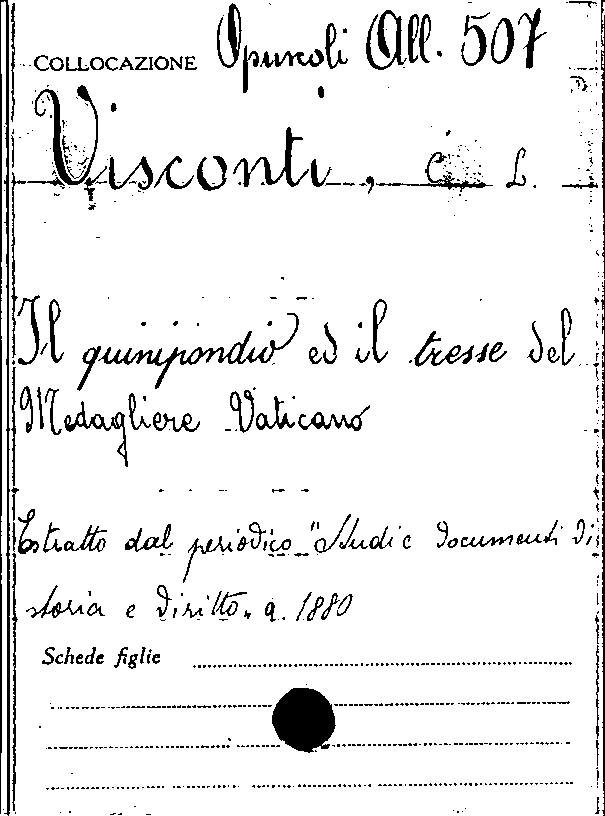 COLLOCAZIONE Opuscoli All. 507
Visconti, C. L.
Il quinipondio ed il tresse del
Medagliere Vaticano
Estratto dal periodico "Studi e documenti di
storia e diritto" a. 1880
Schede figlie